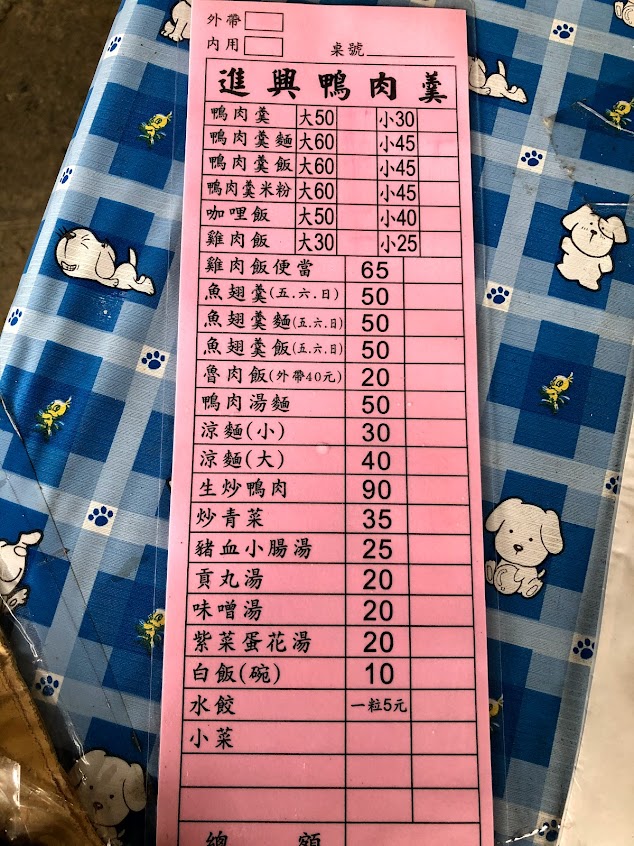 外帶
內用 桌號
進興鴨肉羹
鴨肉羹 大50 小30
鴨肉羹麵 大60 小45
鴨肉羹飯 大60 小45
鴨肉羹米粉 大60 小45
咖哩飯 大50 小40
雞肉飯 大30 小25
雞肉飯便當 65
魚翅羹(五.六.日) 50
魚翅羹麵(五.六.日) 50
魚翅羹飯(五.六.日) 50
魯肉飯(外帶40元) 20
鴨肉湯麵 50
涼麵(小) 30
涼麵(大) 40
生炒鴨肉 90
炒青菜 35
豬血小腸湯 25
貢丸湯 20
味噌湯 20
紫菜蛋花湯 20
白飯(碗) 10
水餃 一粒5元
小菜
總額